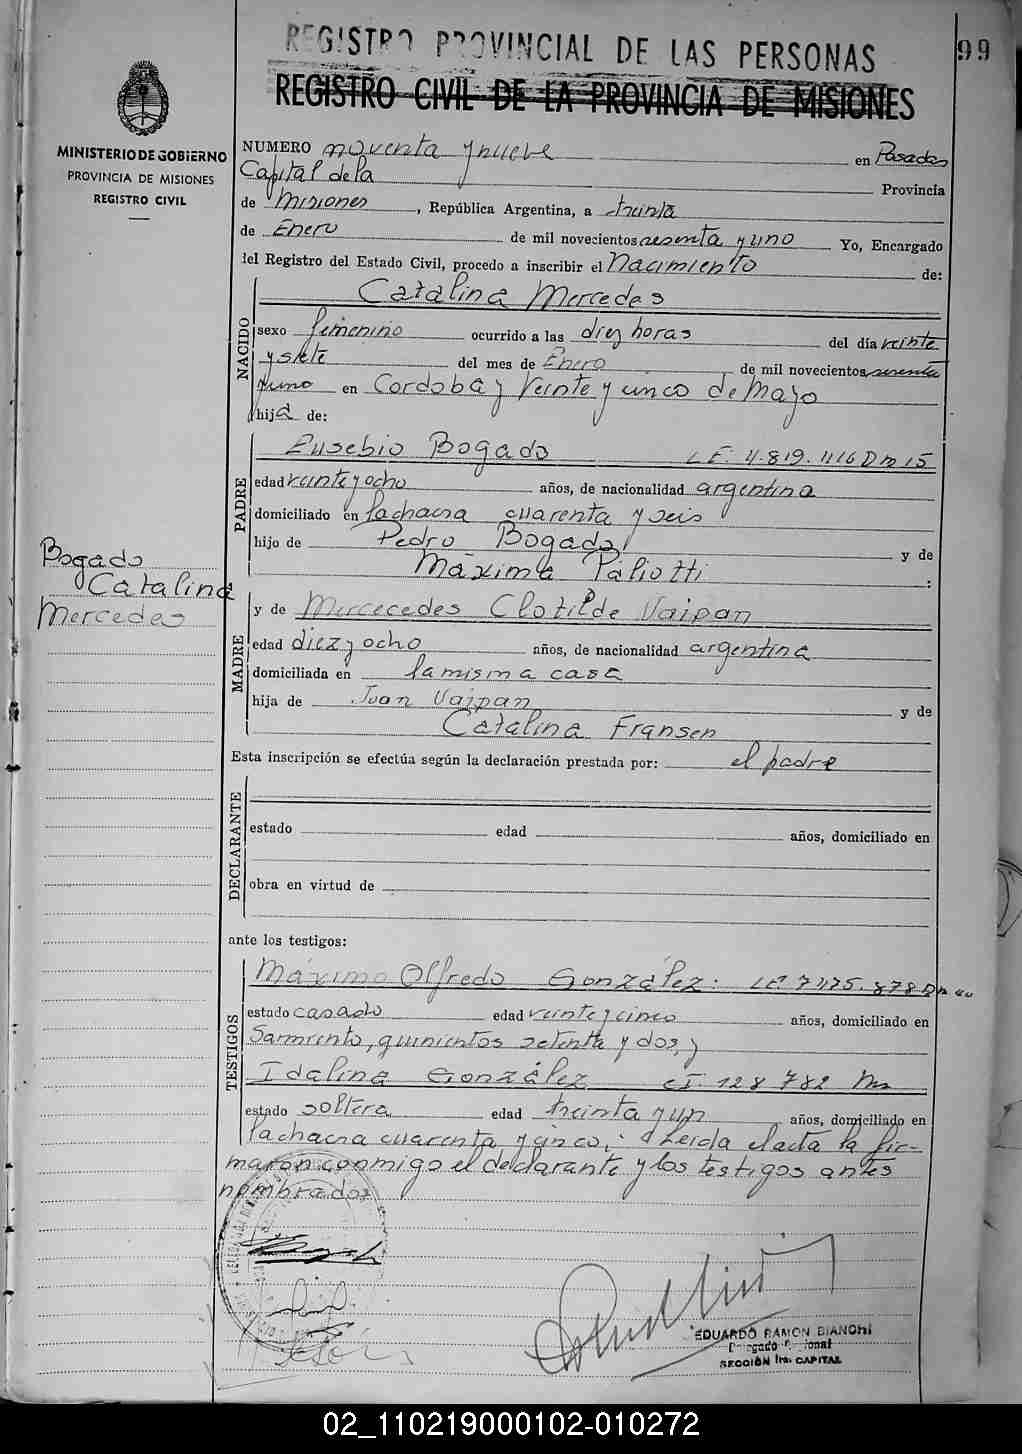 REGISTRO PROVINCIAL DE LAS PERSONAS
99
REGISTRO CIVIL DE LA PROVINCIA DE MISIONES
MINISTERIO DE GOBIERNO
PROVINCIA DE MISIONES
REGISTRO CIVIL
NUMERO noventa y nueve en Posadas
Capital de la Provincia
de Misiones, República Argentina, a treinta
de Enero de mil novecientos sesenta y uno Yo, Encargado
del Registro del Estado Civil, procedo a inscribir el Nacimiento de:
NACIDO
Catalina Mercedes
sexo femenino ocurrido a las diez horas del día veinte
y siete del mes de Enero, de mil novecientos sesenta
y uno en Cordoba y Veinte y cinco de Mayo
hija de:
PADRE
Eusebio Bogado LE. 4.819.1116 Dm 15
edad veinte y ocho años, de nacionalidad argentina
domiciliado en la chacra cuarenta y seis
hijo de Pedro Bogado y de
Máxima Paliotti :
Bogado
Catalina
Mercedes
MADRE
y de Mercecedes Clotilde Vaipan
edad diez y ocho años, de nacionalidad argentina
domiciliada en la misma casa
hija de Juan Vaipan y de
Catalina Fransen
Esta inscripción se efectúa según la declaración prestada por: el padre
DECLARANTE
estado edad años, domiciliado en
obra en virtud de
ante los testigos:
TESTIGOS
Máximo Olfredo González: LE 7.175.878 Dm
estado casado edad veinte y cinco años, domiciliado en
Sarmiento, quinientos setenta y dos, y
Idalina González CI. 128782 Ms
estado soltera edad treinta y un años, domiciliado en
la chacra cuarenta y cinco,: Leida el acta la fir-
maron conmigo el declarante y los testigos antes
nombrados
EDUARDO RAMON BIANCHI
Delegado Regional
SECCIÓN 1ra. CAPITAL
02_110219000102-010272